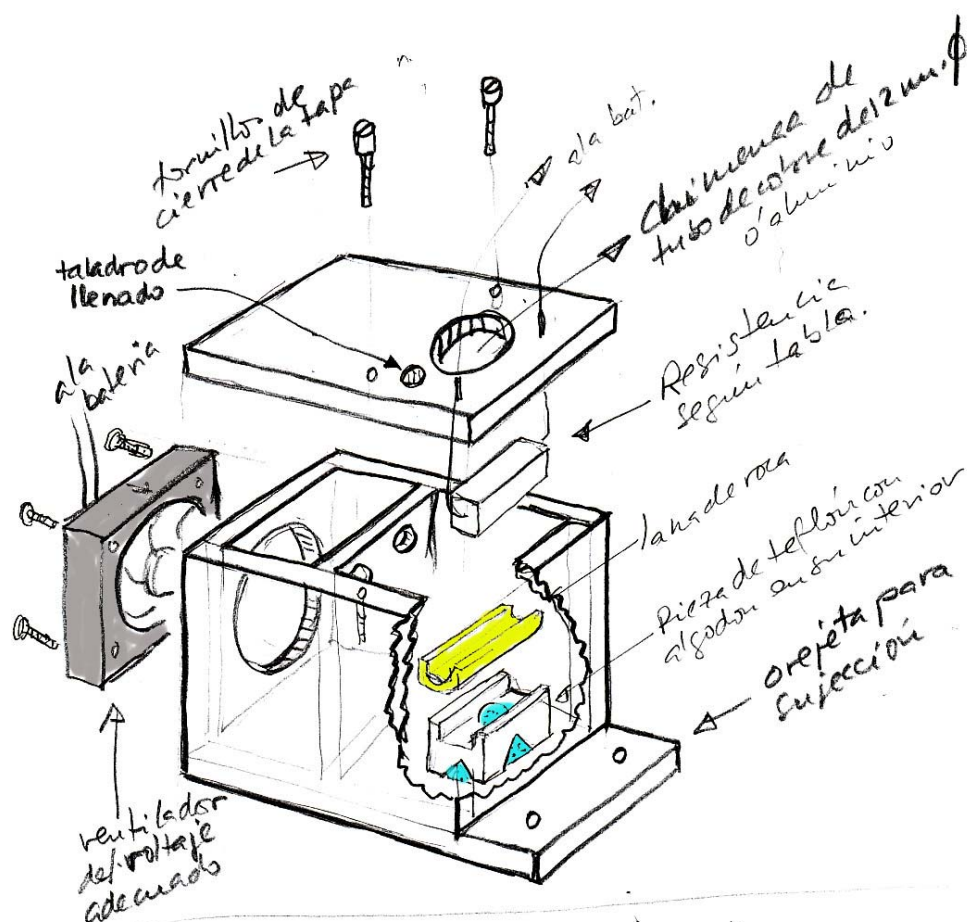 tornillos de
cierre de la tapa
a la bat.
Chimenea de
tubo de cobre de 12 mm. ϕ
o aluminio
taladro de
llenado
a la
bateria
Resistencia
según tabla.
lana de roca
pieza de teflón con
algodon en su interior
orejeta para
sujección
ventilador
del voltaje
adecuado